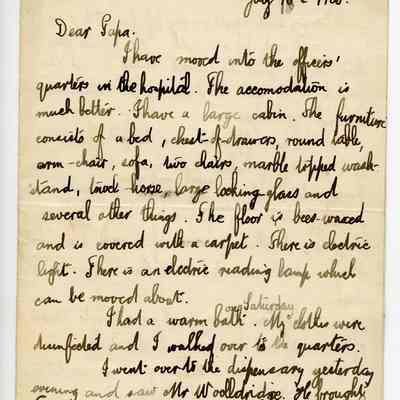 July
Dear Papa.
I have moved into the officers'
quarters in the hospital. The accomodation is
much better. I have a large cabin. The furniture
consists of a bed, chest-of-drawers, round table,
arm-chair, sofa, two chairs, marble topped wash-
stand, towel horse, large looking glass and
several other things. The floor is bees-waxed
and is covered with a carpet. There is electric
light. There is an electric reading lamp which
can be moved about.
on Saturday
I had a warm bath. My clothes were
disinfected and I walked over to the quarters.
I went over to the dispensary yesterday
evening and saw Mr Wooldridge. He brought